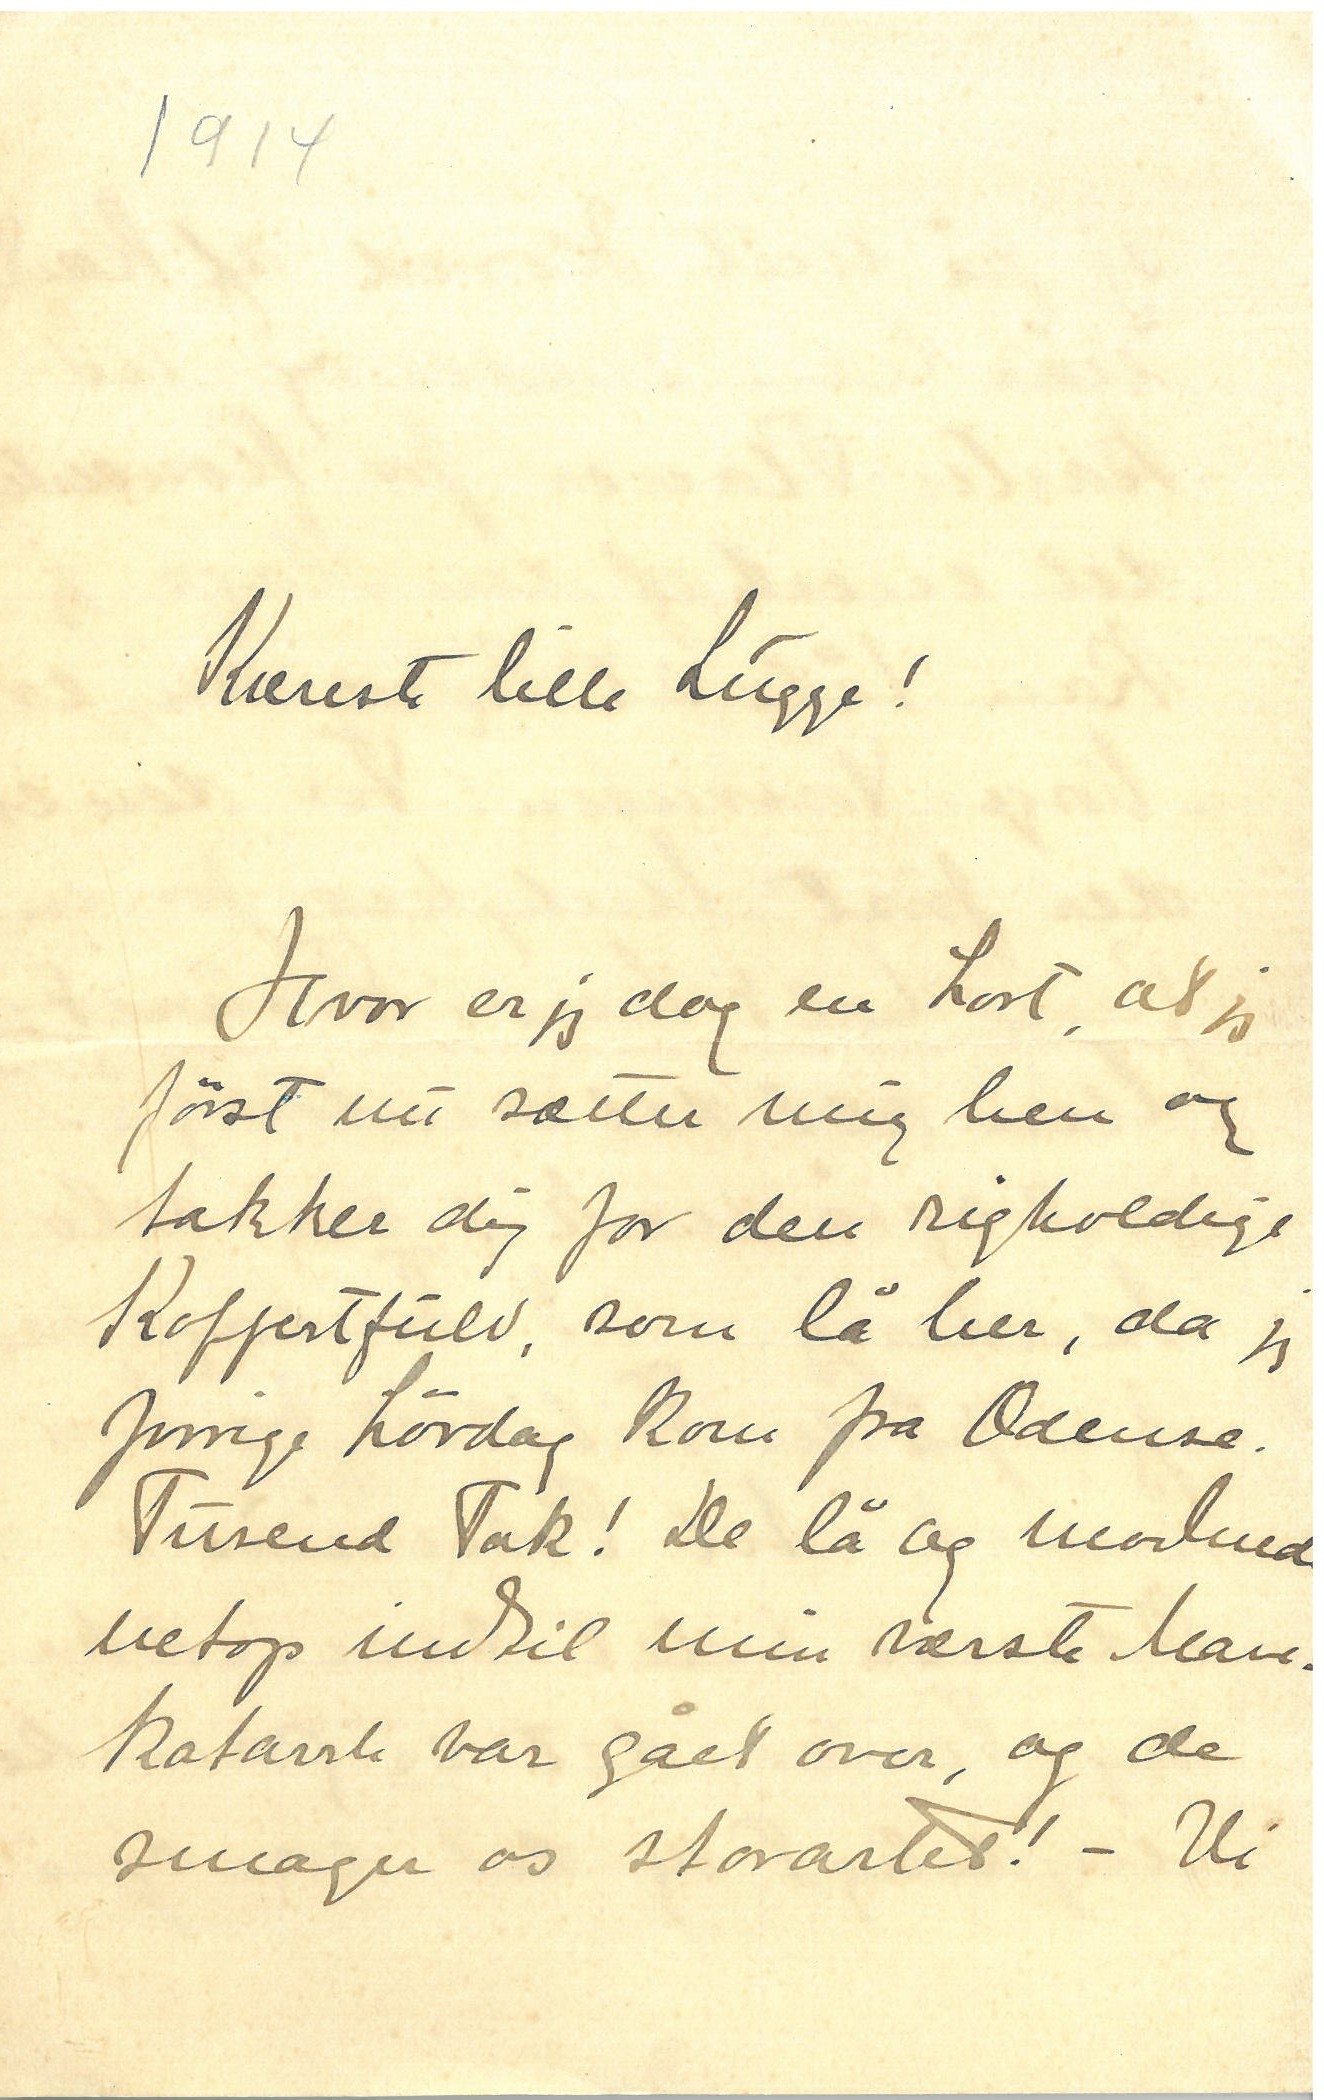 1914
Kæreste lille Lugge!
Hvor er jeg dog en Lort, at jeg
først nu sætter mig hen og
takker dig for den righoldige
Koffertfuld, som lå her, da jeg
forrige Lørdag kom fra Odense.
Tusend Tak! De lå og modned
netop indtil min værste Mave-
katarrh var gået over, og de
smager os storartet! - Vi